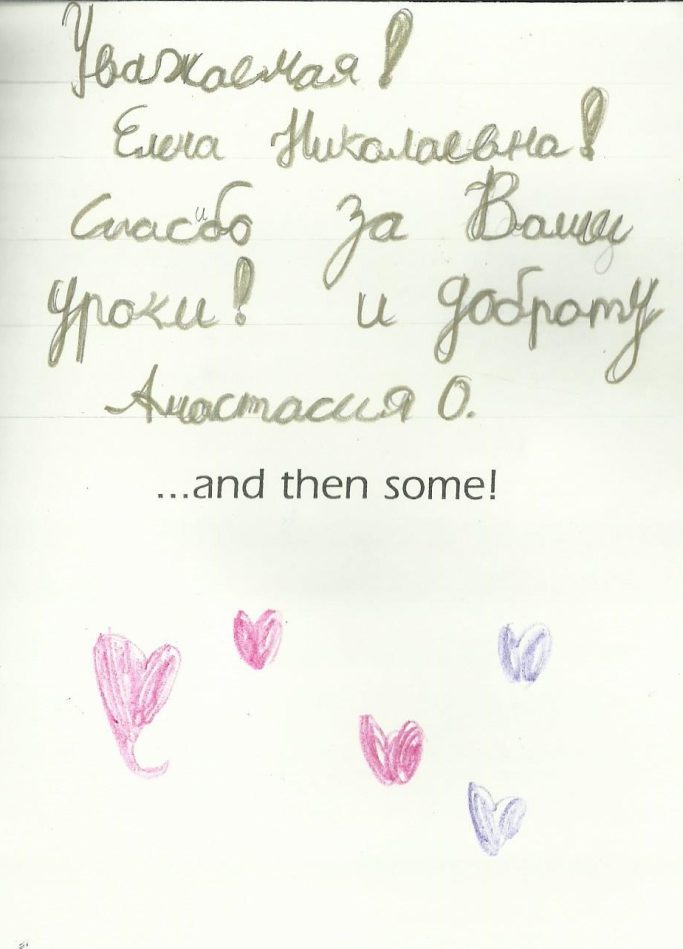 Уважаемая!
Елена Николаевна!
Спасибо за Ваши
уроки! и доброту
Анастасия О.
...and then some!